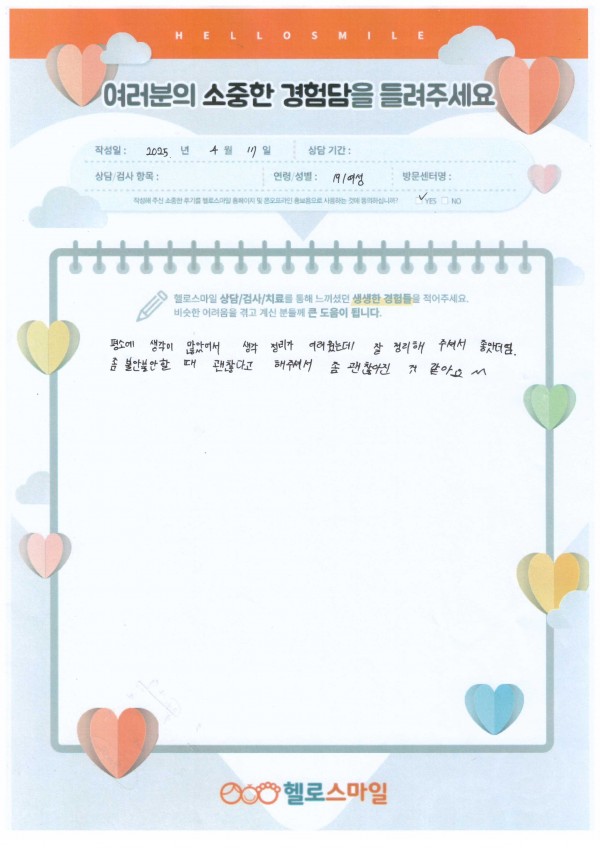 HELLOSMILE
여러분의 소중한 경험담을 들려주세요
작성일 : 2025. 년 4 월 17 일 상담 기간 :
상담/검사 항목 : 연령/성별 : 19/여성 방문센터명 :
작성해 주신 소중한 후기를 헬로스마일 홈페이지 및 온오프라인 홍보용으로 사용하는 것에 동의하십니까? ✓ YES NO
헬로스마일 상담/검사/치료를 통해 느끼셨던 생생한 경험들을 적어주세요.
비슷한 어려움을 겪고 계신 분들께 큰 도움이 됩니다.
평소에 생각이 많았어서 생각 정리가 어려웠는데 잘 정리해 주셔서 좋았더염.
좀 불안불안할 때 괜찮다고 해주셔서 좀 괜찮아진 것 같아요 ^^
헬로스마일